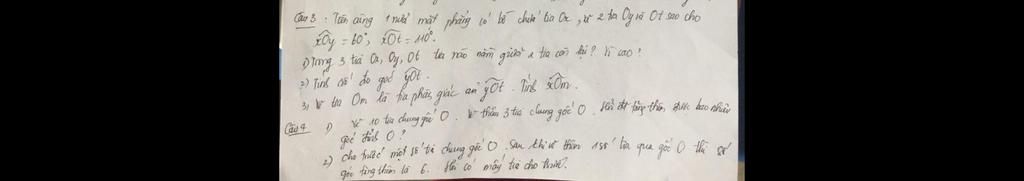 Câu 3 : Trên cùng 1 nửa mặt phẳng có bờ chứa tia Ox, vẽ 2 tia Oy và Ot sao cho
xOy = 60°, xOt = 110°.
1) Trong 3 tia Ox, Oy, Ot tia nào nằm giữa 2 tia còn lại? Vì sao?
2) Tính số đo góc yOt.
3) Vẽ tia Om là tia phân giác của yOt. Tính xOm.
Câu 4 1) Vẽ 10 tia chung gốc O. Vẽ thêm 3 tia chung gốc O. Hỏi đã tăng thêm được bao nhiêu
góc đỉnh O?
2) Cho trước một số tia chung gốc O. Sau khi vẽ thêm tia qua gốc O thì số
góc tăng thêm là 6. Hỏi có mấy tia cho trước?